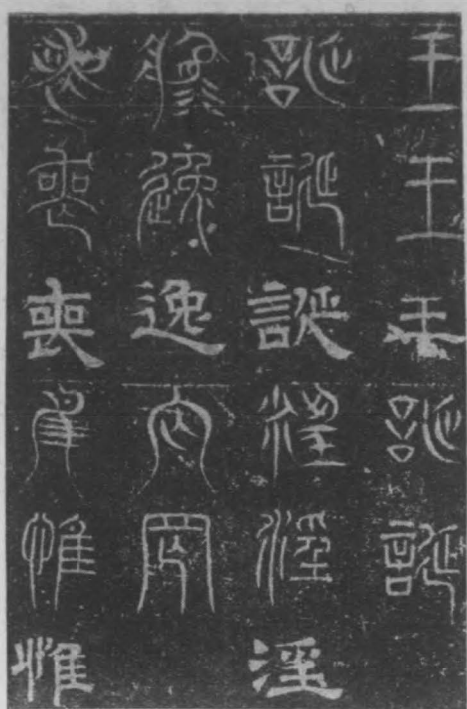 王王王誕誕
誕誕誕淫淫淫
逸逸逸罔罔
喪喪喪惟惟惟